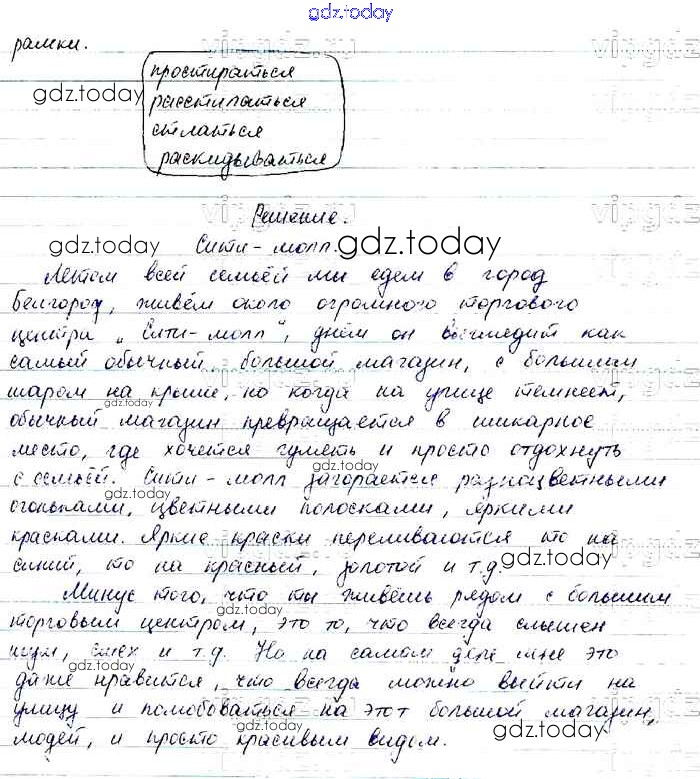 gdz.today
рамки.
простираться
расстилаться
стлаться
раскидываться
Решение.
Сити-молл.
Летом всей семьёй мы едем в город
Белгород, живём около огромного торгового
центра „Сити-молл", днём он выглядит как
самый обычный, большой магазин, с большим
шаром на крыше, но когда на улице темнеет,
обычный магазин превращается в шикарное
место, где хочется гулять и просто отдохнуть
с семьёй. Сити-молл загорается разноцветными
огоньками, цветными полосками, яркими
красками. Яркие краски переливаются то на
синий, то на красный, золотой и т.д.
Минус того, что ты живёшь рядом с большим
торговым центром, это то, что всегда слышен
шум, смех и т.д. Но на самом деле мне это
даже нравится, что всегда можно выйти на
улицу и помобоваться на этот большой магазин,
людей, и просто красивым видом.